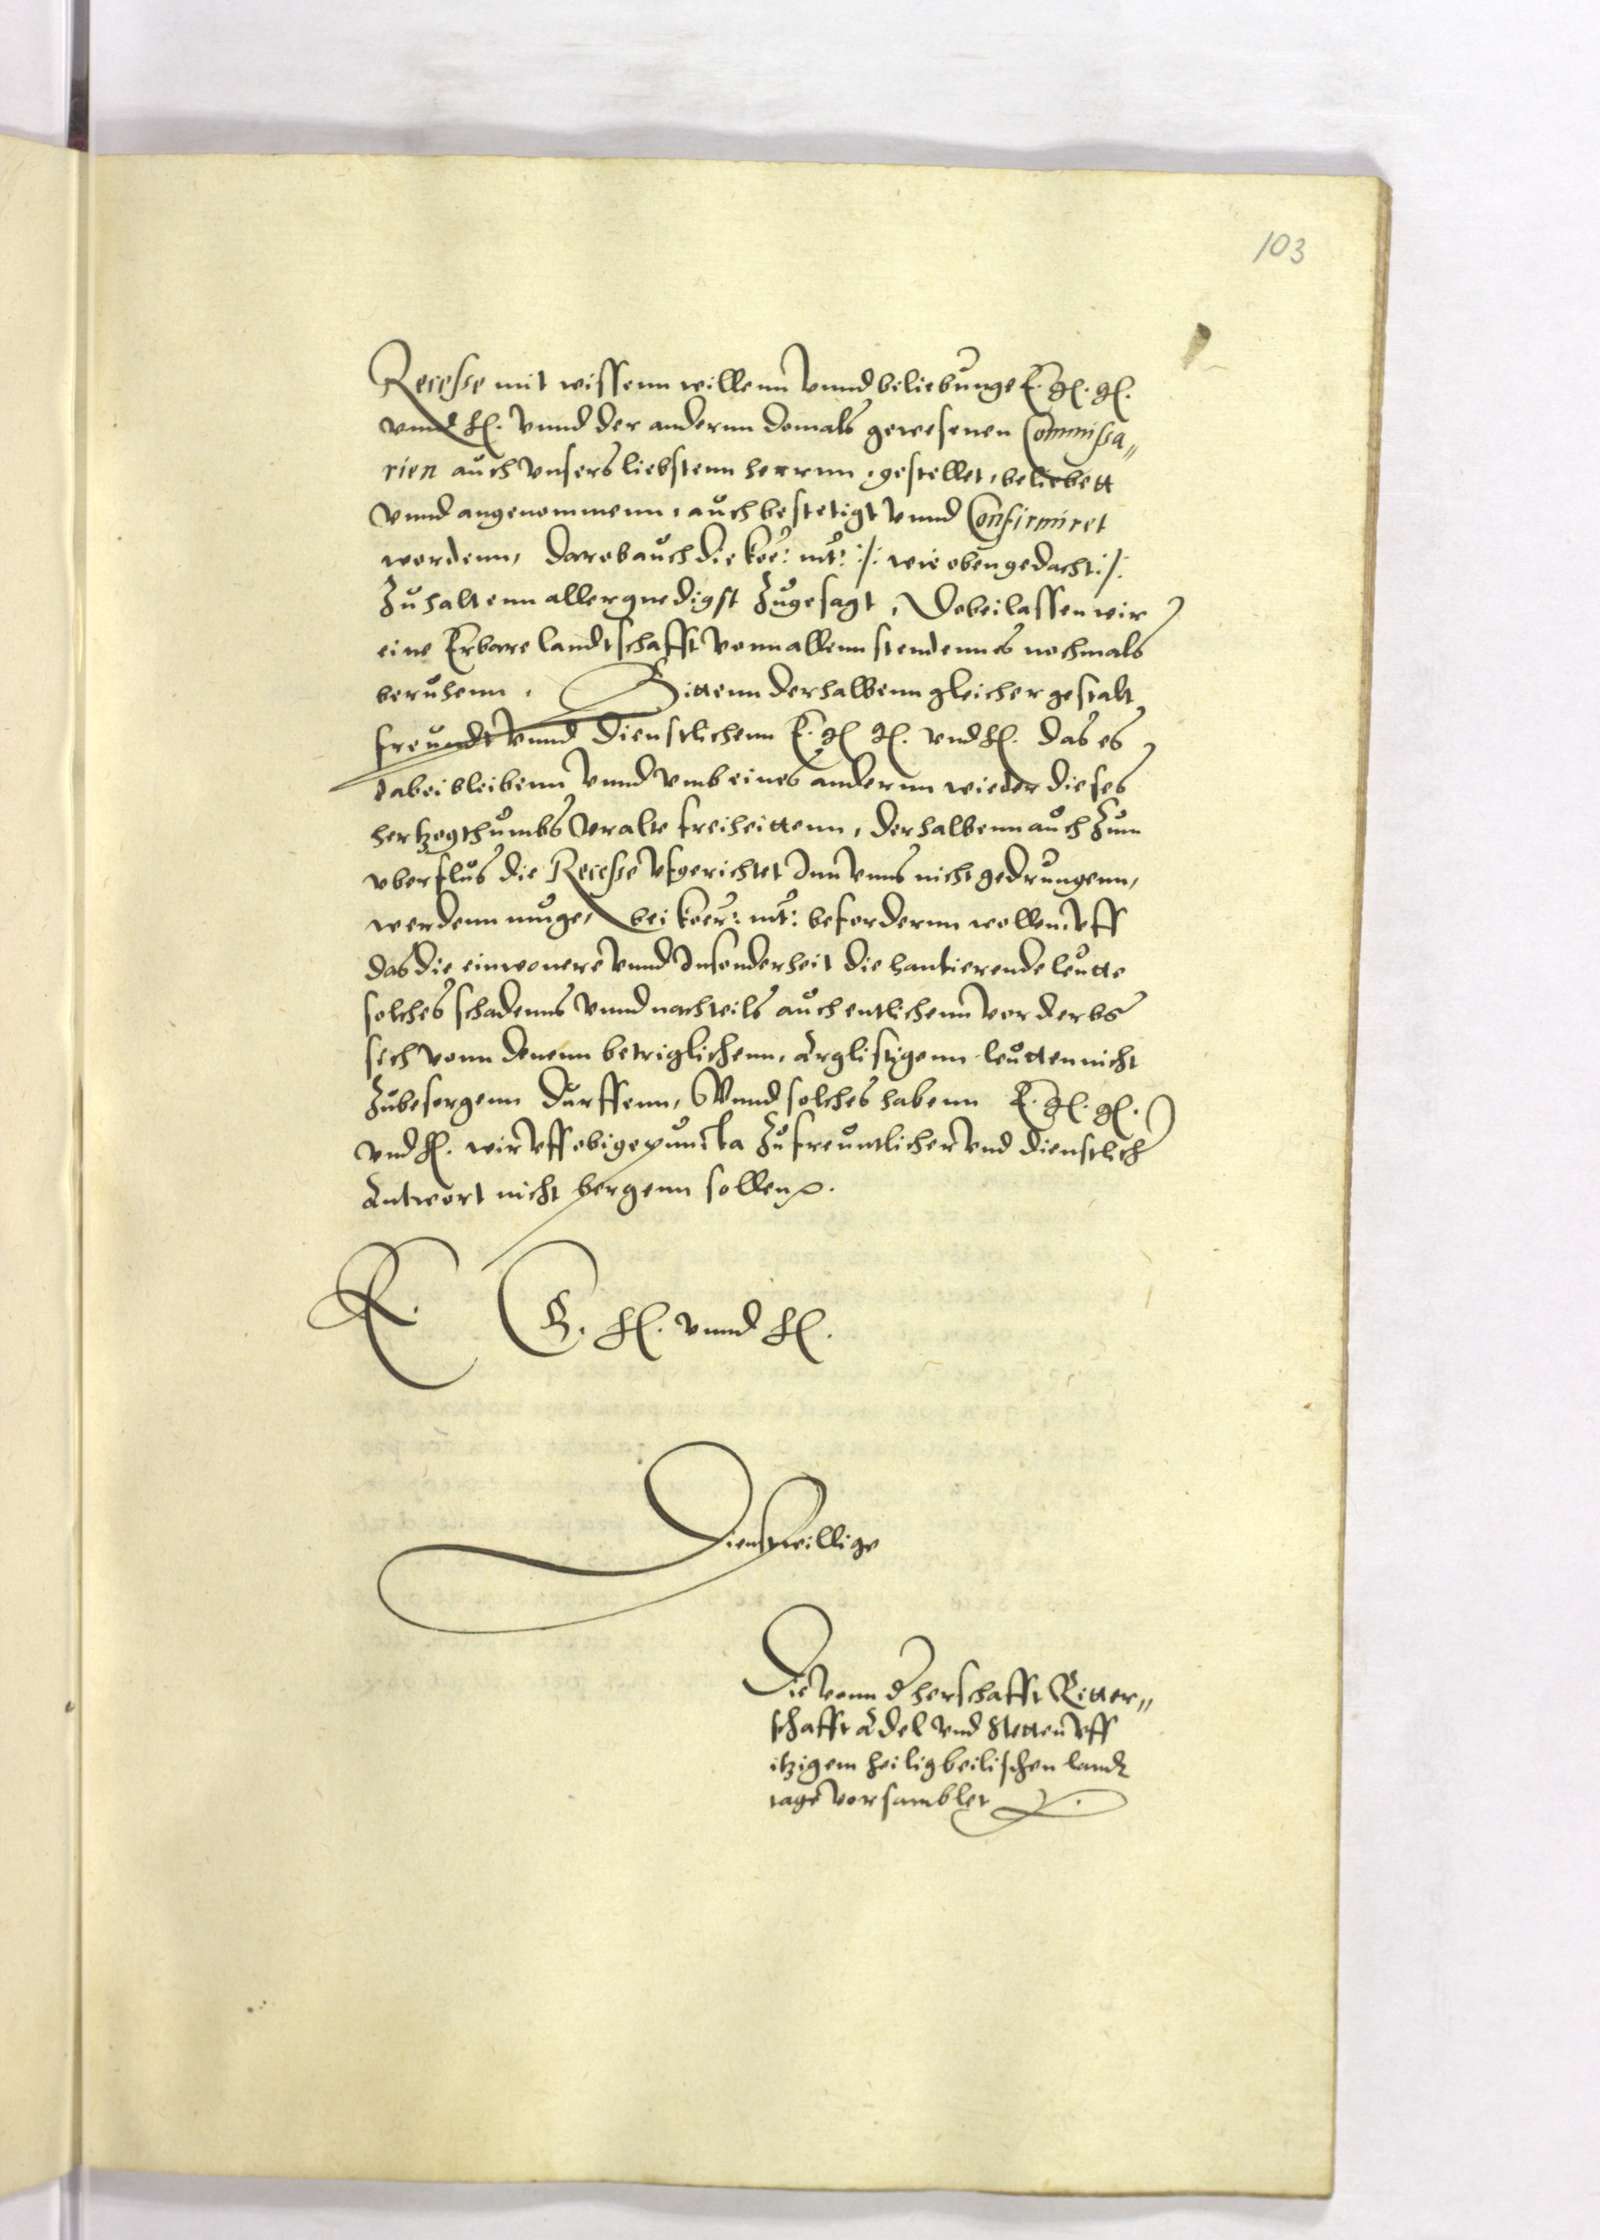 103
Recesse mit wissenn willenn vnnd beliebunge E. G. G.
vnnd H. vnnd der andernn domals gewesenen Commissa„
rien auch vnsers liebstenn herrnn, gestellet, beliebett
vnnd angenommenn, auch bestetigt vnnd Confirmiret
wordenn, darob auch die koe: mt: :/: wie oben gedacht :/:
zuhaltenn allergnedigst zugesagt, Dobei lassen wir
eine Erbare landtschafft vonn allenn stendenn es nochmals
beruhenn. Bittenn derhalbenn gleicher gestalt
freundt vnnd dienstlichenn E. G. G. vnd H. das es
dabei bleibenn vnnd vmb eines andernn wieder dieses
hertzogthumbs vralte freiheittenn, derhalbenn auch zum
vberflus die Recesse vfgerichtet Inn vnns nicht gedrungenn,
werdenn muge, bei koer: mt: befordernn wollen, vff
das die einwonere vnnd Insonderheit die hantierende leutte
solches schadenns vnnd nachteils auch entlichenn vorderbs
sich vonn denenn betriglichenn, Arglistigenn leutten nicht
zubesorgenn durffenn, Vnnd solches habenn E. G. G.
vnd H. wir vff obige puncta zu freuntlicher vnd dienstlich
Antwort nicht bergenn sollen.
E. G. H. vnnd H.
Dienstwillige
Die vonn d herschafft Ritter„
schafft Adel vnd Stetten vff
itzigem heiligbeilischen landt
tage vorsamblet